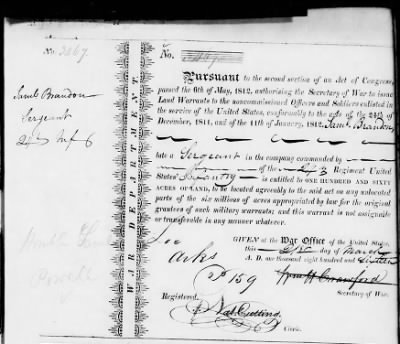 No. 2467
No.
Pursuant to the second section of an Act of Congress,
passed the 6th of May, 1812, authorising the Secretary of War to issue
Land Warrants to the noncommissioned Officers and Soldiers enlisted in
the service of the United States, conformably to the acts of the 24th of
December, 1811, and of the 11th of January, 1812, Saml. Brandon,
Saml Brandon
Sergeant
WAR DEPARTMENT.
late a Sergeant in the company commanded by
of the Regiment United
States' Infantry is entitled to ONE HUNDRED AND SIXTY
ACRES OF LAND, to be located agreeably to the said act on any unlocated
parts of the six millions of acres appropriated by law for the original
grantees of such military warrants; and this warrant is not assignable
or transferable in any manner whatever.
GIVEN at the War Office of the United States,
this day of March
A. D. one thousand eight hundred and sixteen
Arks
159
Wm H Crawford
Secretary of War.
Registered,
Nat Cutting
Clerk.